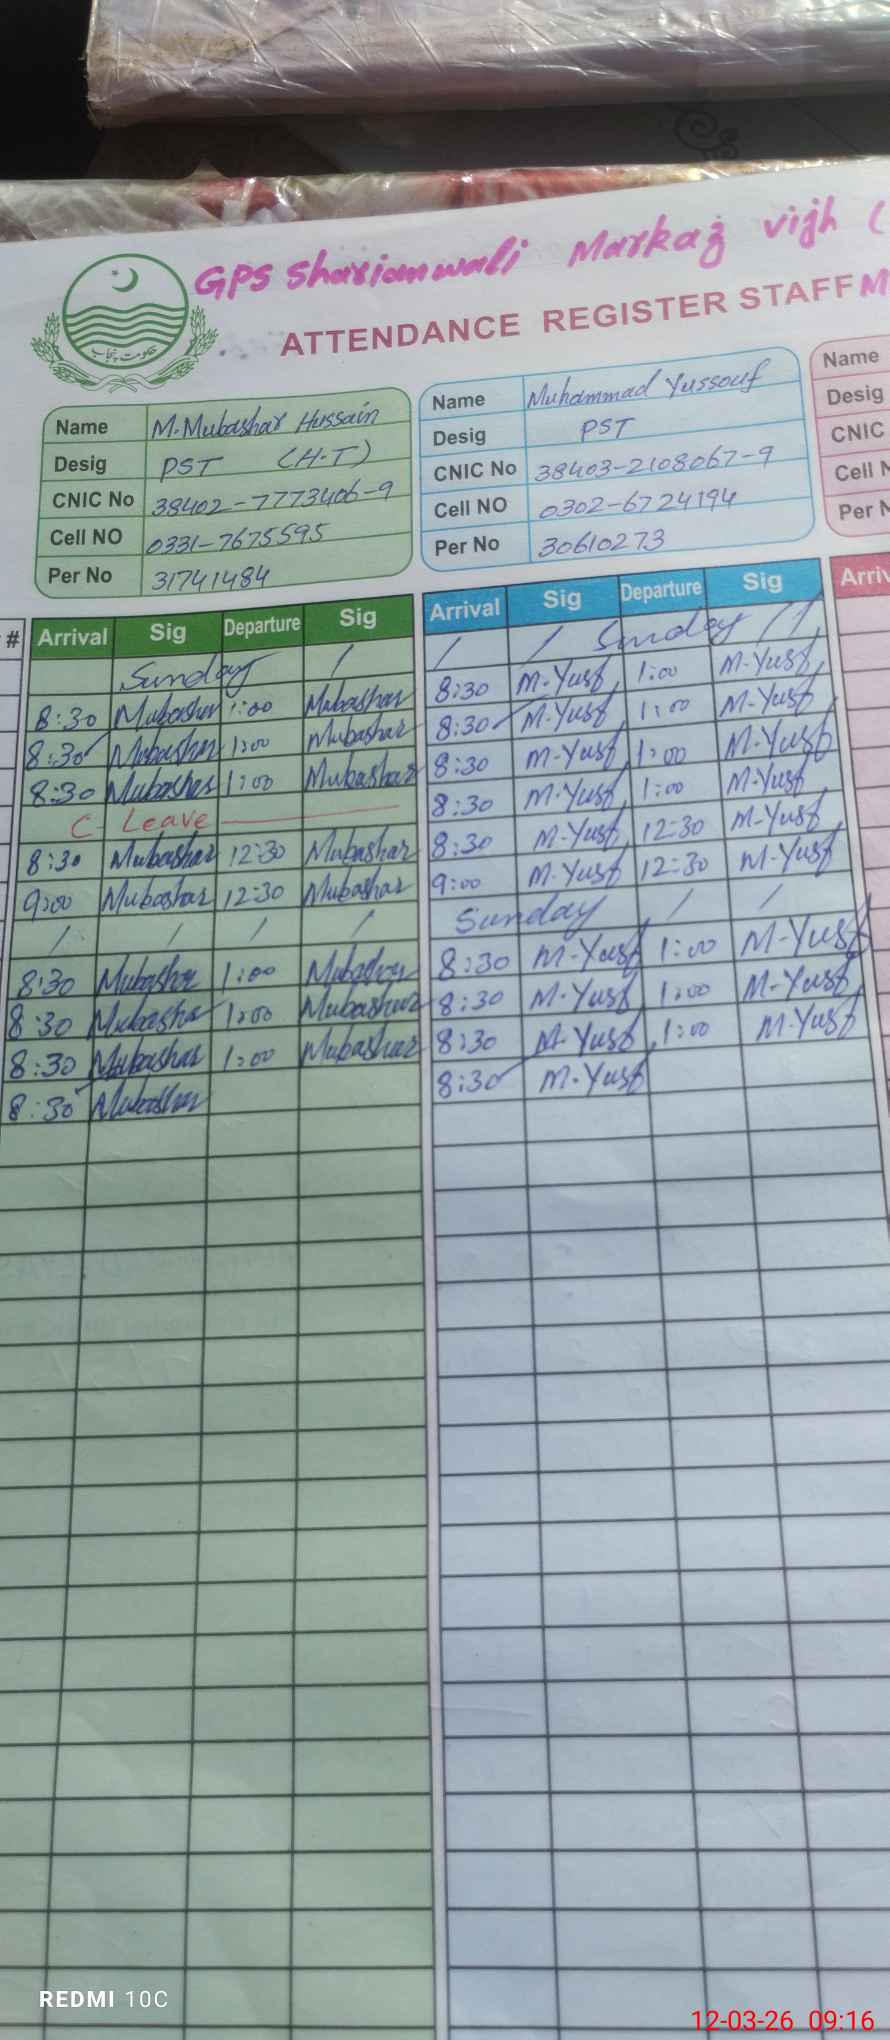 GPS Shariamwali Markaz vijh (
حکومت پنجاب
ATTENDANCE REGISTER STAFF M
Name M.Mubashar Hussain
Desig PST (H.T)
CNIC No 38402-7773406-9
Cell NO 0331-7675595
Per No 31741484
Name Muhammad Yussouf
Desig PST
CNIC No 38403-2108067-9
Cell NO 0302-6724194
Per No 30610273
Name
Desig
CNIC
Cell N
Per N
# Arrival Sig Departure Sig
Sunday /
8:30 Mubashar 1:00 Mubashar
8:30 Mubashar 1:00 Mubashar
8:30 Mubashar 1:00 Mubashar
C- Leave
8:30 Mubashar 12:30 Mubashar
9:00 Mubashar 12:30 Mubashar
/ / / /
8:30 Mubashar 1:00 Mubashar
8:30 Mubashar 1:00 Mubashar
8:30 Mubashar 1:00 Mubashar
8:30 Mubashar
Arrival Sig Departure Sig
/ / Sunday / /
8:30 M-Yusf 1:00 M-Yusf
8:30 M-Yusf 1:00 M-Yusf
8:30 M-Yusf 1:00 M-Yusf
8:30 M-Yusf 1:00 M-Yusf
8:30 M-Yusf 12:30 M-Yusf
9:00 M-Yusf 12:30 M-Yusf
Sunday / /
8:30 M-Yusf 1:00 M-Yusf
8:30 M-Yusf 1:00 M-Yusf
8:30 M-Yusf 1:00 M-Yusf
8:30 M-Yusf
Arriv
REDMI 10C
12-03-26 09:16